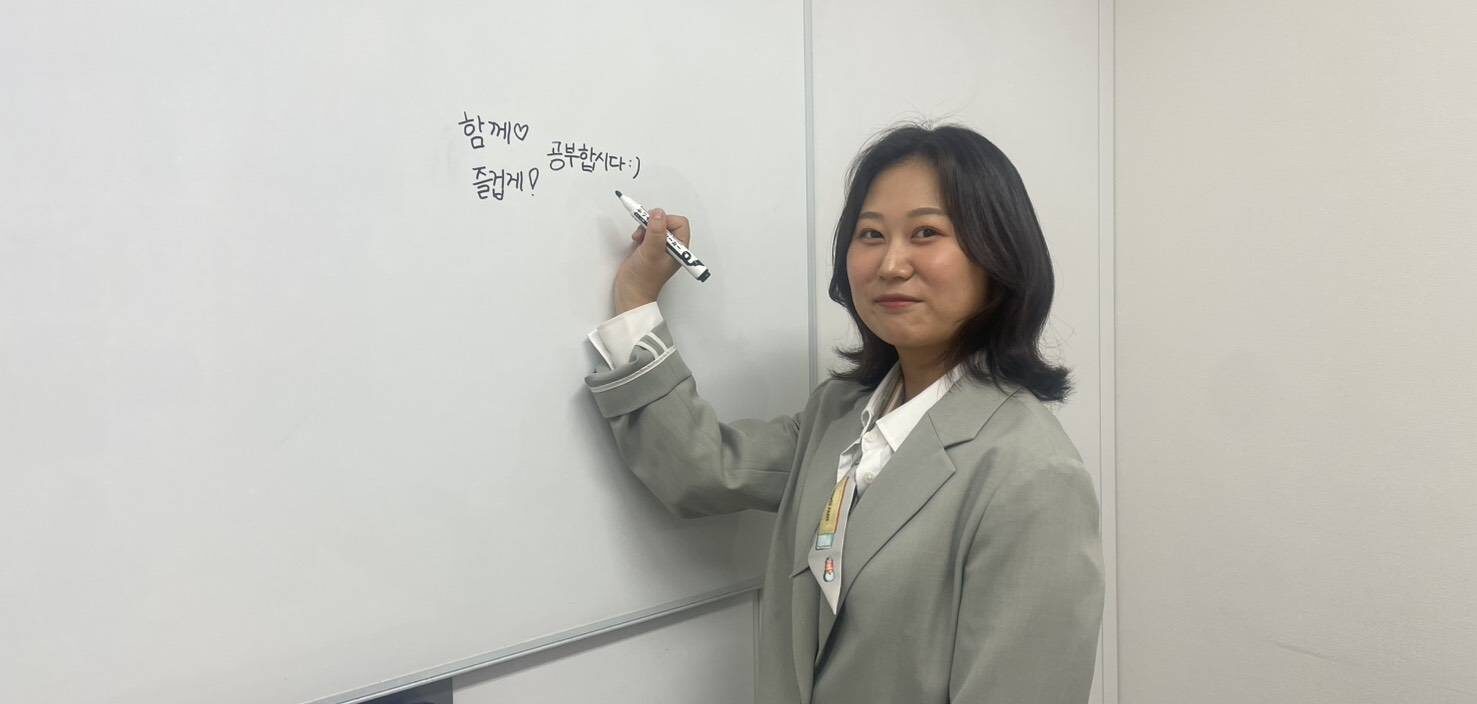 함께♡
즐겁게!
공부합시다:)